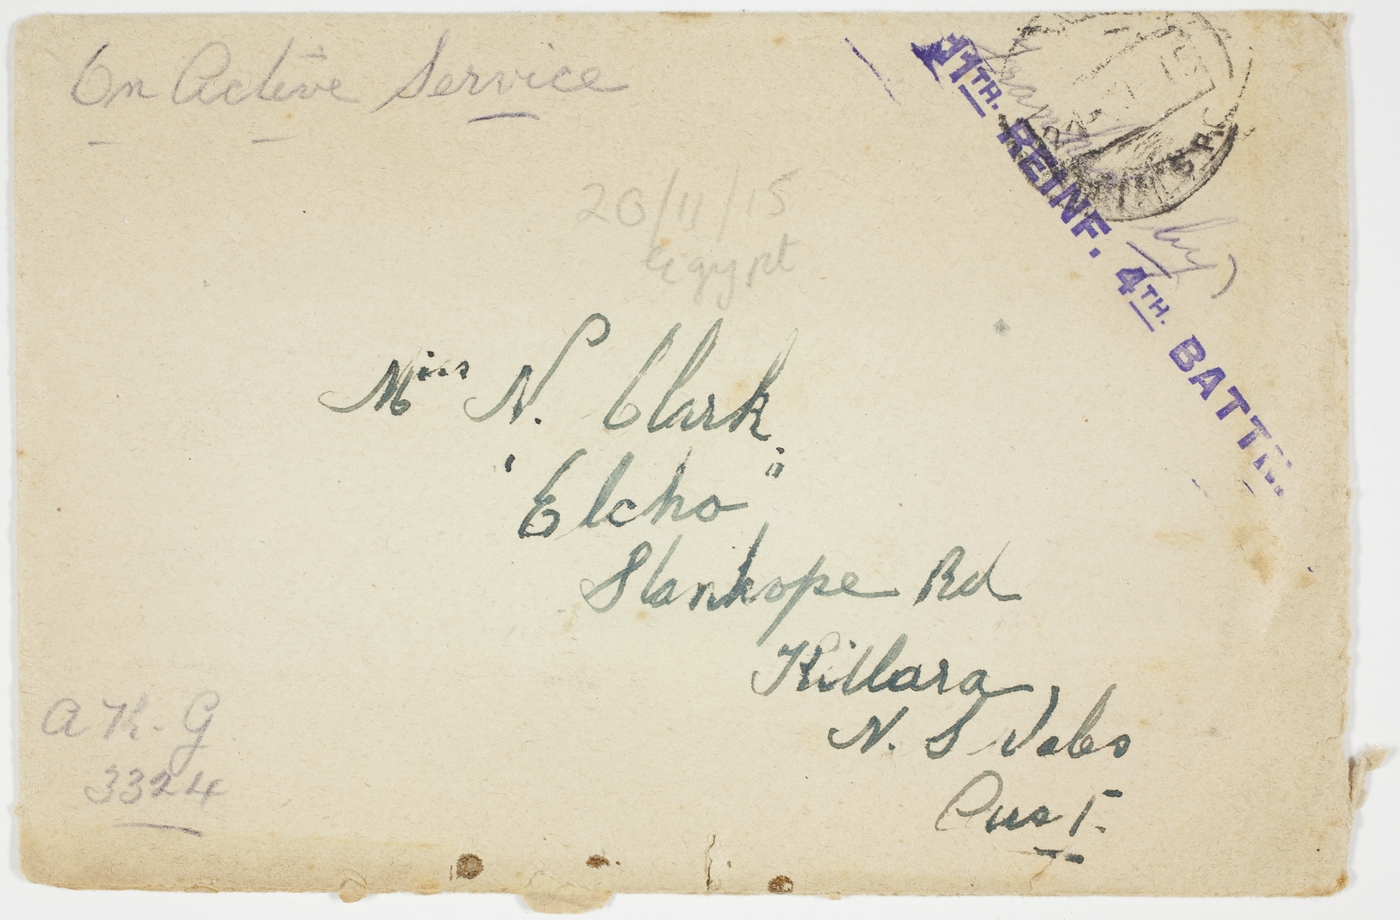 On Active Service
11TH. REINF. 4TH. BATTN.
20/11/15
Egypt
Miss N. Clark
"Elcho"
Stanhope Rd
Killara
N. S Wales
Aust.
A K. G
3324